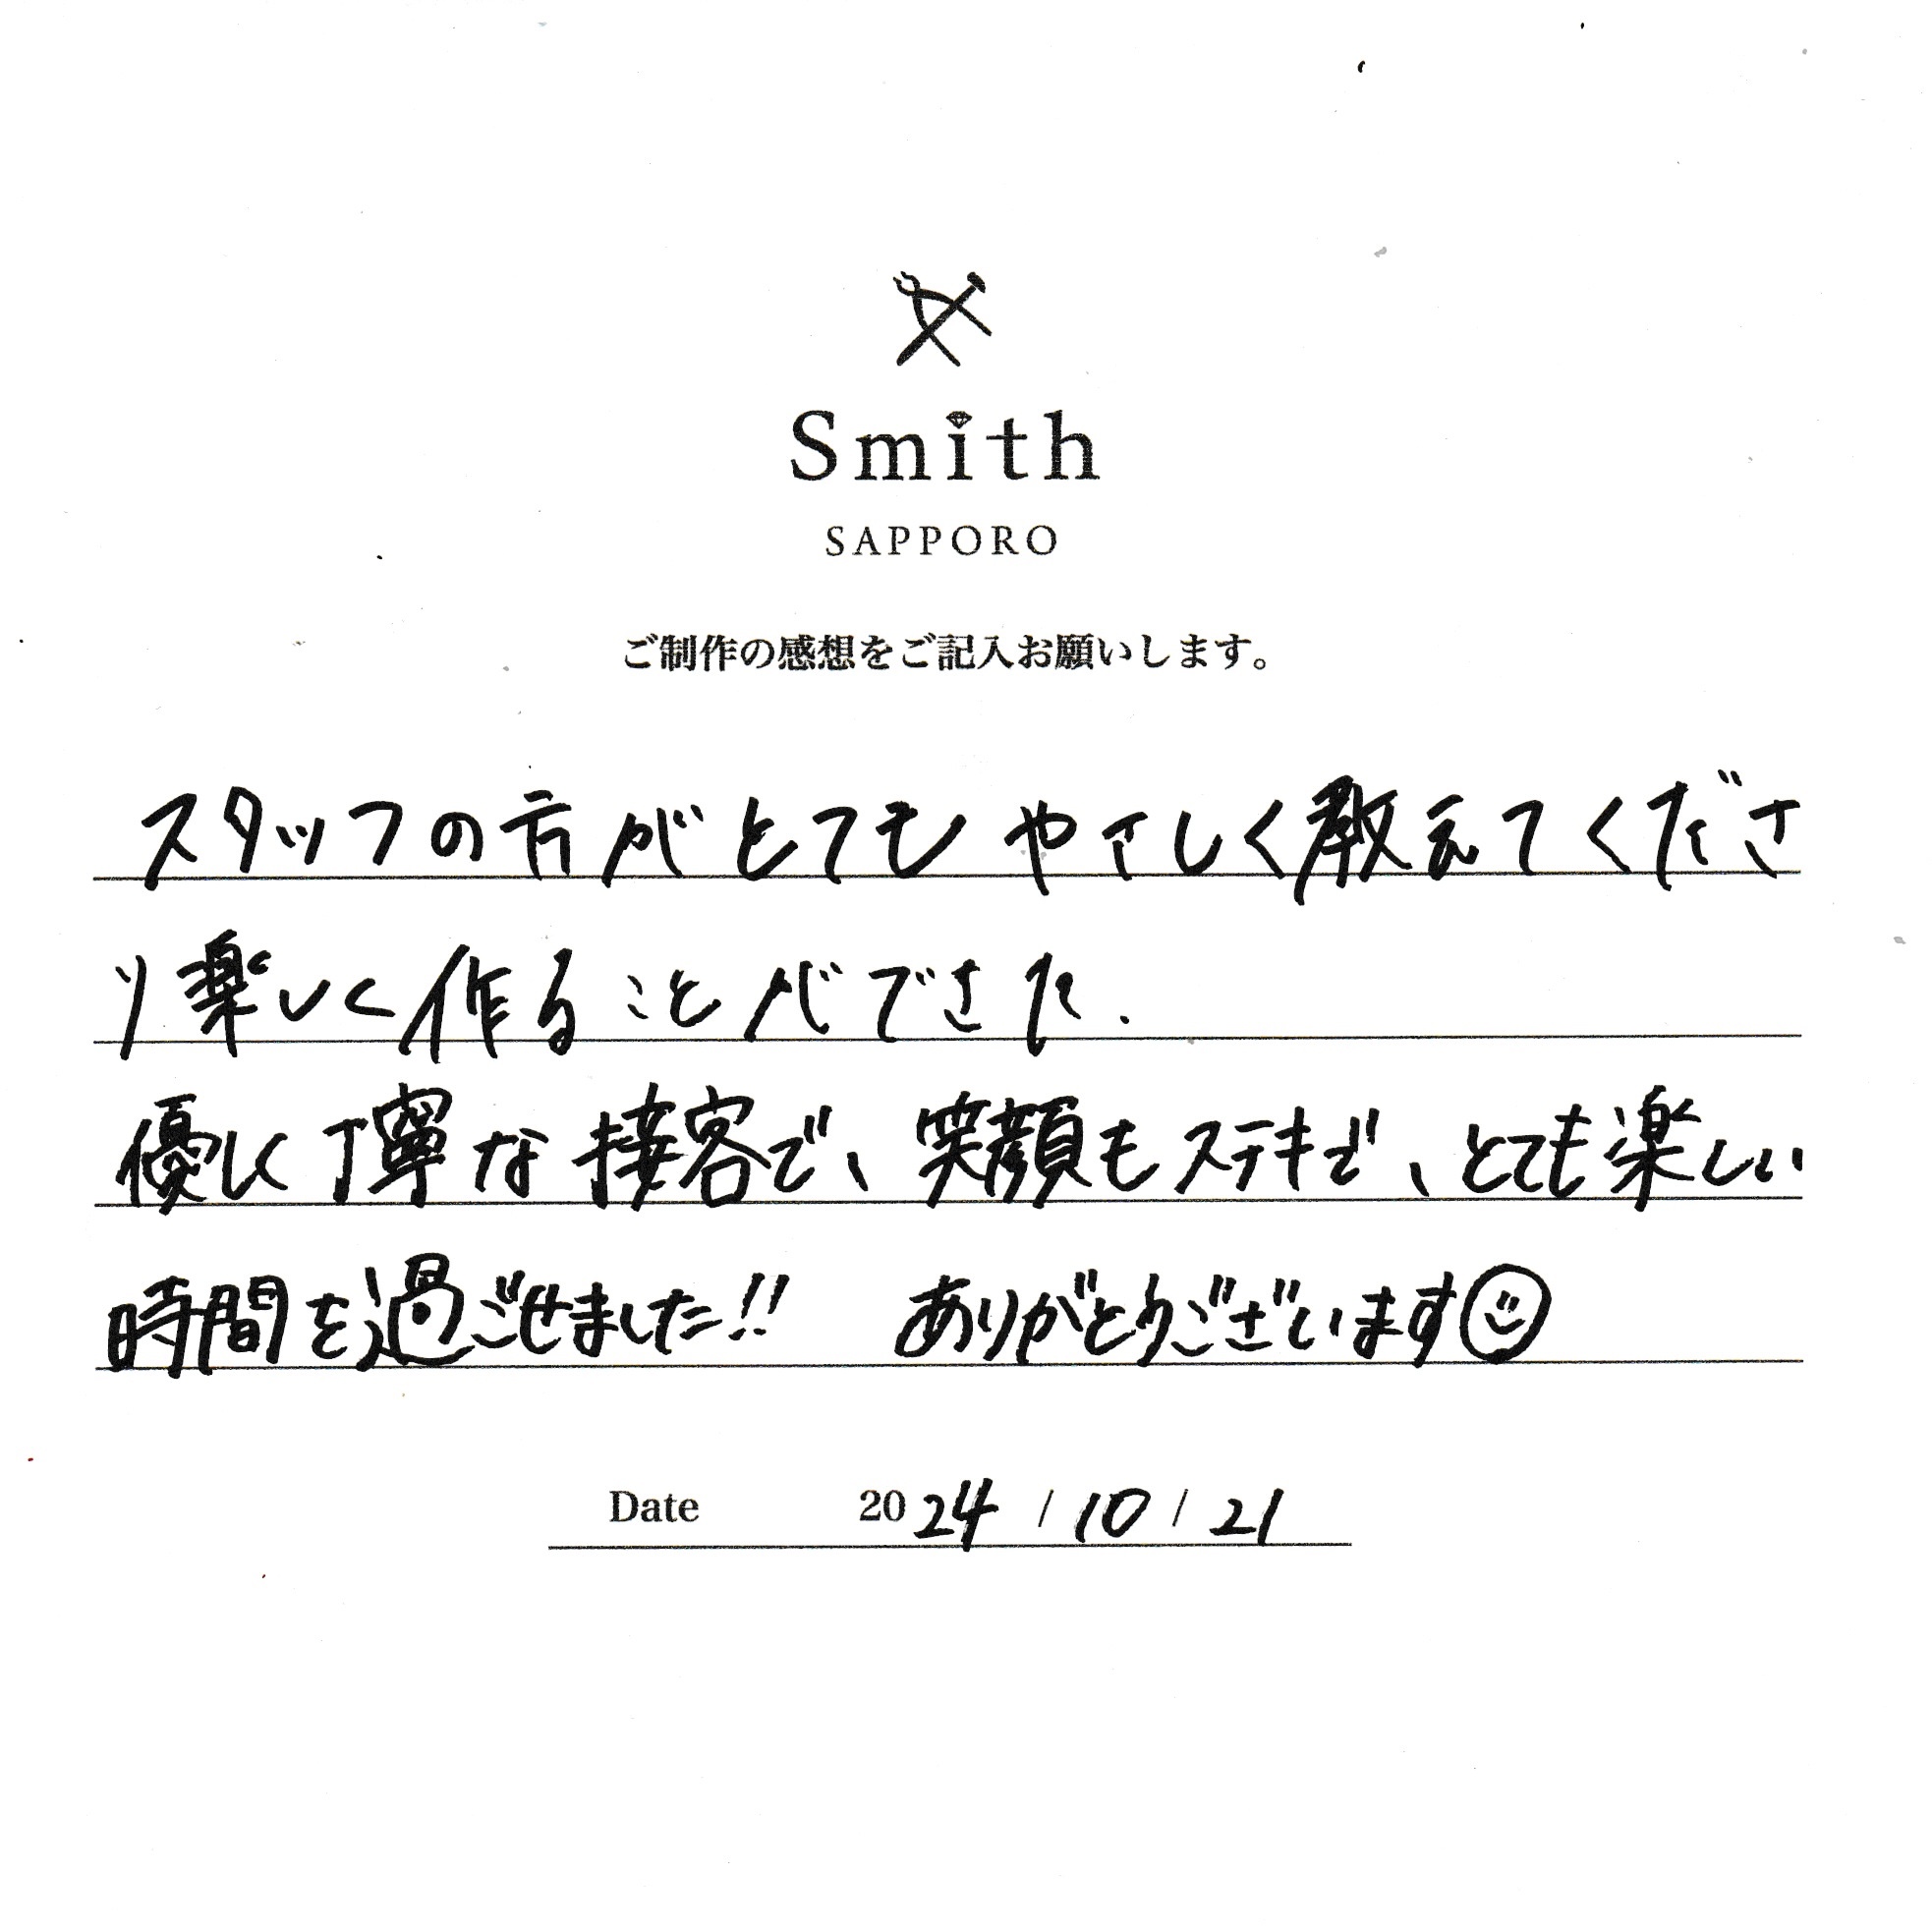 Smith
SAPPORO
ご制作の感想をご記入お願いします。
スタッフの方がとてもやさしく教えてくださ
り楽しく作ることができた.
優しく丁寧な接客で、笑顔もステキで、とても楽しい
時間を過ごせました!! ありがとうございます☺
Date 2024 / 10 / 21